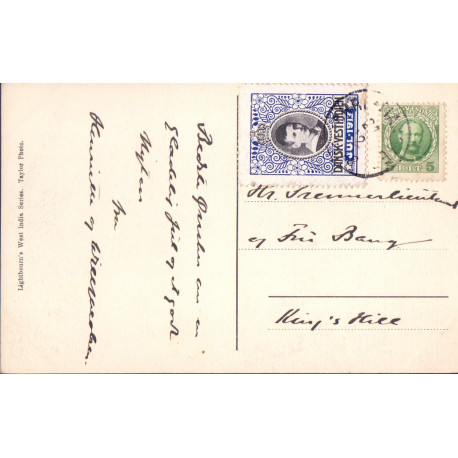 Bedste Ønsker om en
Glædelig Jul og et godt
Nytaar
fra
Henriette og
Lightbourn's West India Series. Taylor Photo.
DANSK-VESTINDIEN
JUL·1913
5
BIT
Hr. Premierlieutenant
og Fru Bang
King's Hill